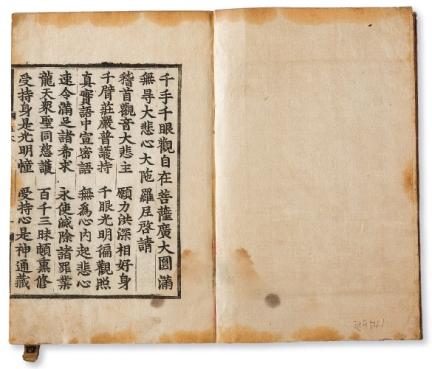 千手千眼觀自在菩薩廣大圓滿
無㝵大悲心大陁羅尼啓請
稽首觀音大悲主 願力洪深相好身
千臂莊嚴普護持 千眼光明徧觀照
真實語中宣密語 無為心內起悲心
速令滿足諸希求 永使滅除諸罪業
龍天衆聖同慈護 百千三昧頓熏修
受持身是光明幢 受持心是神通藏